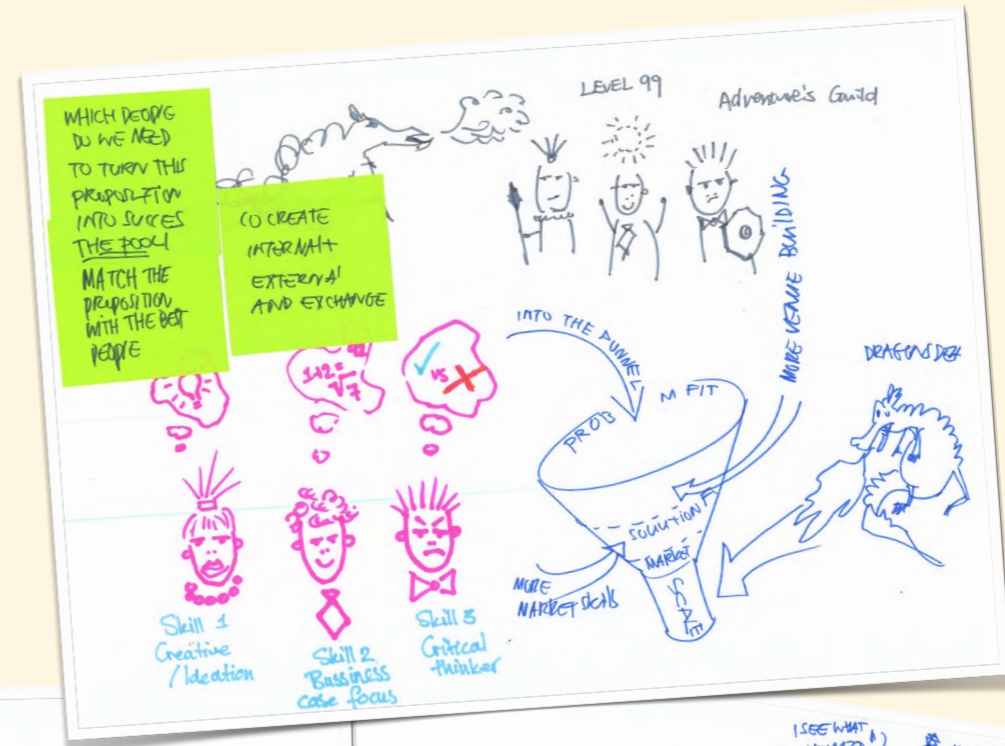 WHICH PEOPLE
DO WE NEED
TO TURN THIS
PROPOSITION
INTO SUCCES
THE POOL!
MATCH THE
PROPOSITION
WITH THE BEST
PEOPLE
CO CREATE
INTERNAL +
EXTERNAL
AND EXCHANGE
LEVEL 99
Adventure's Guild
MORE VENTURE BUILDING
INTO THE FUNNEL
PROB M FIT
SOLUTION F
MARKET
SCALE
MORE
MARKET Skills
DRAGONS DEN
VS
Skill 1
Creative
/ Ideation
Skill 2
Bassiness
case focus
Skill 3
Critical
thinker
I SEE WHAT